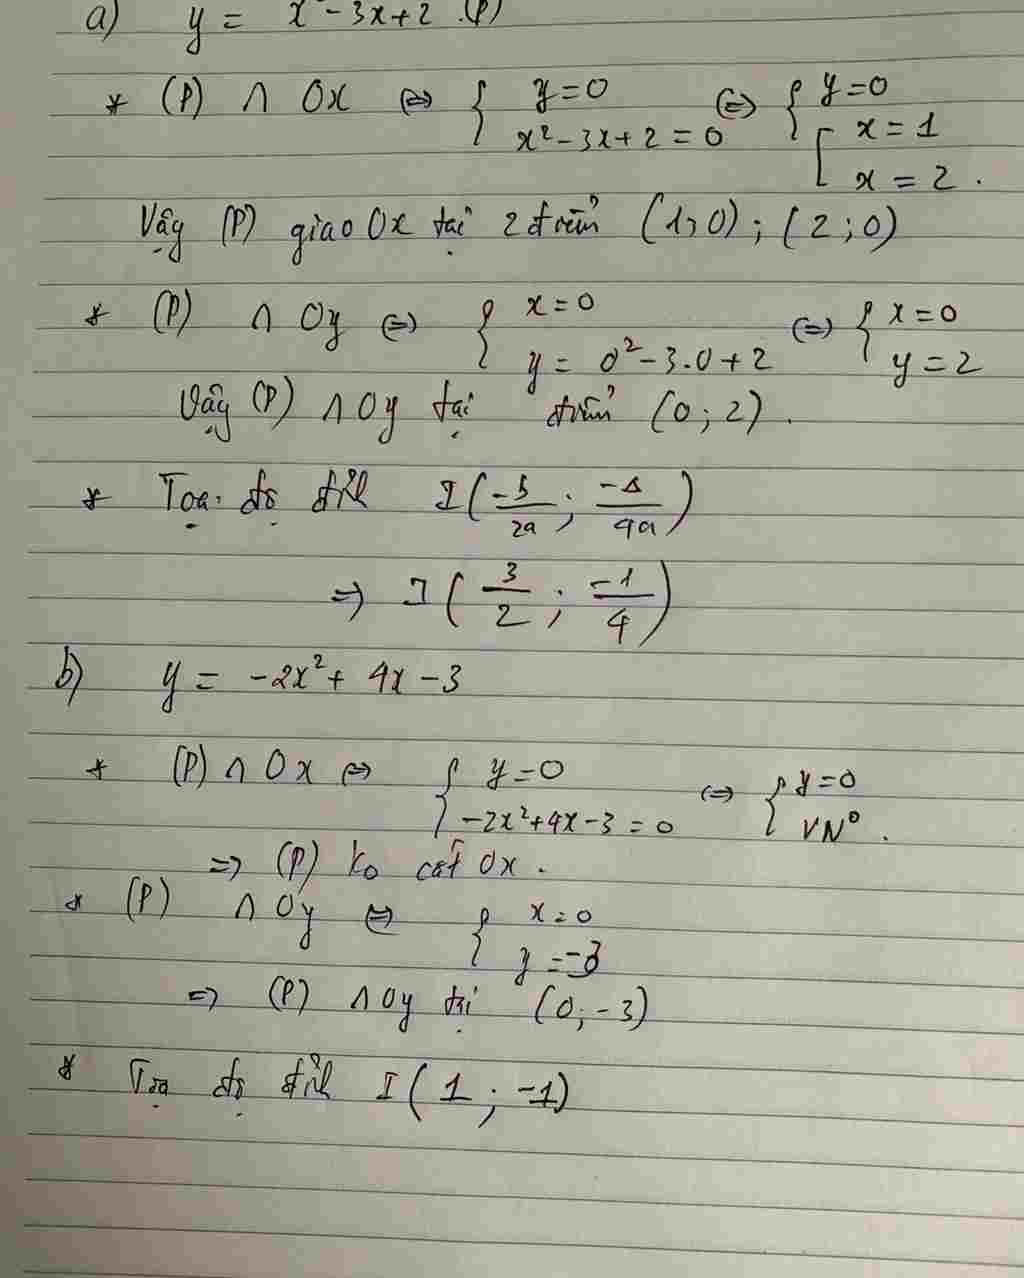 a) y = x² - 3x + 2 (P)
* (P) ∩ Ox ⇔ { y = 0 ; x² - 3x + 2 = 0 ⇔ { y = 0 ; [ x = 1 ; x = 2 .
Vậy (P) giao Ox tại 2 điểm (1; 0) ; (2 ; 0)
* (P) ∩ Oy ⇔ { x = 0 ; y = 0² - 3.0 + 2 ⇔ { x = 0 ; y = 2
Vậy (P) ∩ Oy tại điểm (0 ; 2) .
* Tọa độ đỉnh I ( -b/2a ; -Δ/4a )
⇒ I ( 3/2 ; -1/4 )
b) y = -2x² + 4x - 3
* (P) ∩ Ox ⇔ { y = 0 ; -2x² + 4x - 3 = 0 ⇔ { y = 0 ; VN⁰ .
⇒ (P) ko cắt Ox .
* (P) ∩ Oy ⇔ { x = 0 ; y = -3
⇒ (P) ∩ Oy tại (0; -3)
* Tọa độ đỉnh I ( 1 ; -1)